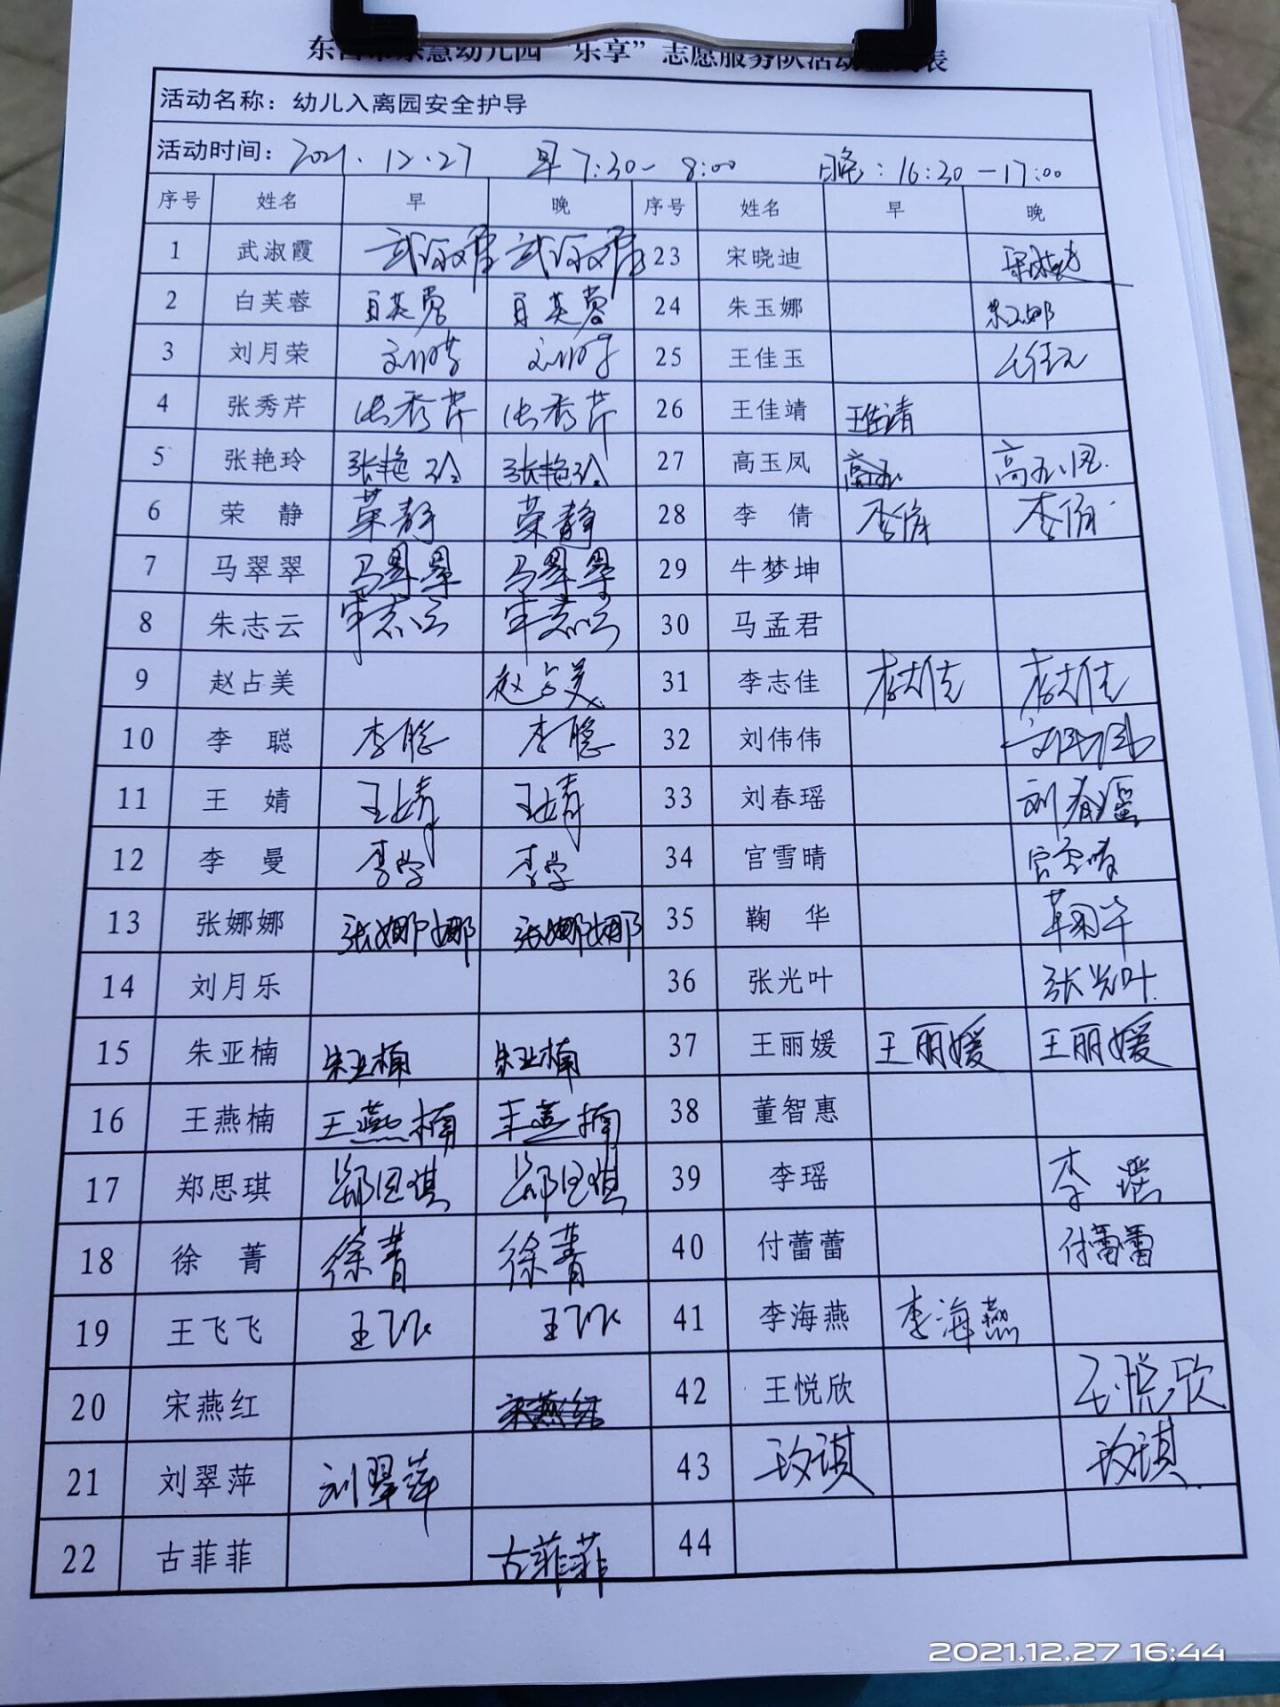 幼儿园“乐享”志愿服务队活动
活动名称：幼儿入离园安全护导
活动时间：2021.12.27 早7:30-8:00 晚：16:30-17:00
序号 姓名 早 晚 序号 姓名 早 晚
1 武淑霞 武淑霞 武淑霞 23 宋晓迪 宋晓迪
2 白芙蓉 白芙蓉 白芙蓉 24 朱玉娜 朱玉娜
3 刘月荣 25 王佳玉 王佳玉
4 张秀芹 张秀芹 张秀芹 26 王佳靖 王佳靖
5 张艳玲 张艳玲 张艳玲 27 高玉凤 高玉 高玉凤
6 荣 静 荣静 荣静 28 李 倩 李倩 李倩
7 马翠翠 马翠翠 马翠翠 29 牛梦坤
8 朱志云 朱志云 朱志云 30 马孟君
9 赵占美 赵占美 31 李志佳 李志佳 李志佳
10 李 聪 李聪 李聪 32 刘伟伟 刘伟伟
11 王 婧 王婧 王婧 33 刘春瑶 刘春瑶
12 李 曼 34 官雪晴 官雪晴
13 张娜娜 张娜娜 张娜娜 35 鞠 华 鞠华
14 刘月乐 36 张光叶 张光叶
15 朱亚楠 朱亚楠 朱亚楠 37 王丽媛 王丽媛 王丽媛
16 王燕楠 王燕楠 王燕楠 38 董智惠
17 郑思琪 郑思琪 郑思琪 39 李瑶 李瑶
18 徐 菁 徐菁 徐菁 40 付蕾蕾 付蕾蕾
19 王飞飞 王飞飞 王飞飞 41 李海燕 李海燕
20 宋燕红 宋燕红 42 王悦欣 王悦欣
21 刘翠萍 刘翠萍 43 玫琪 玫琪
22 古菲菲 古菲菲 44
2021.12.27 16:44